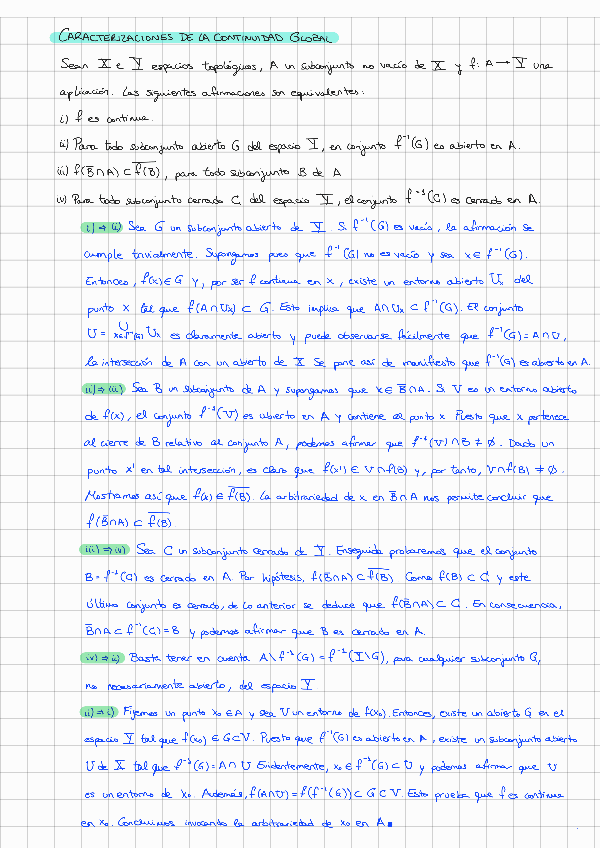 CARACTERIZACIONES DE LA CONTINUIDAD GLOBAL
Sean X e Y espacios topológicos, A un subconjunto no vacío de X y f: A → Y una
aplicación. Las siguientes afirmaciones son equivalentes:
i) f es continua.
ii) Para todo subconjunto abierto G del espacio Y, en conjunto f⁻¹(G) es abierto en A.
iii) f(B̅∩A) ⊂ \overline{f(B)}, para todo subconjunto B de A
iv) Para todo subconjunto cerrado C, del espacio Y, el conjunto f⁻¹(C) es cerrado en A.
i) ⇒ ii) Sea G un subconjunto abierto de Y. Si f⁻¹(G) es vacío, la afirmación se
cumple trivialmente. Supongamos pues que f⁻¹(G) no es vacío y sea x ∈ f⁻¹(G).
Entonces, f(x) ∈ G y, por ser f continua en x, existe un entorno abierto Uₓ del
punto x tal que f(A∩Uₓ) ⊂ G. Esto implica que A∩Uₓ ⊂ f⁻¹(G). El conjunto
U = ∪_{x∈f⁻¹(G)} Uₓ es claramente abierto y puede observarse fácilmente que f⁻¹(G) = A∩U,
la intersección de A con un abierto de X. Se pone así de manifiesto que f⁻¹(G) es abierto en A.
ii) ⇒ iii) Sea B un subconjunto de A y supongamos que x ∈ B̅∩A. Si V es un entorno abierto
de f(x), el conjunto f⁻¹(V) es abierto en A y contiene al punto x. Puesto que x pertenece
al cierre de B relativo al conjunto A, podemos afirmar que f⁻¹(V) ∩ B ≠ ∅. Dado un
punto x' en tal intersección, es claro que f(x') ∈ V∩f(B) y, por tanto, V∩f(B) ≠ ∅.
Mostramos así que f(x) ∈ \overline{f(B)}. La arbitrariedad de x en B̅∩A nos permite concluir que
f(B̅∩A) ⊂ \overline{f(B)}
iii) ⇒ iv) Sea C un subconjunto cerrado de Y. Enseguida probaremos que el conjunto
B = f⁻¹(C) es cerrado en A. Por hipótesis, f(B̅∩A) ⊂ \overline{f(B)}. Como f(B) ⊂ C y este
último conjunto es cerrado, de lo anterior se deduce que f(B̅∩A) ⊂ C. En consecuencia,
B̅∩A ⊂ f⁻¹(C) = B y podemos afirmar que B es cerrado en A.
iv) ⇒ ii) Basta tener en cuenta A\f⁻¹(G) = f⁻¹(Y\G), para cualquier subconjunto G,
no necesariamente abierto, del espacio Y
ii) ⇒ i) Fijemos un punto x₀ ∈ A y sea V un entorno de f(x₀). Entonces, existe un abierto G en el
espacio Y tal que f(x₀) ∈ G ⊂ V. Puesto que f⁻¹(G) es abierto en A, existe un subconjunto abierto
U de X tal que f⁻¹(G) = A∩U. Evidentemente, x₀ ∈ f⁻¹(G) ⊂ U y podemos afirmar que U
es un entorno de x₀. Además, f(A∩U) = f(f⁻¹(G)) ⊂ G ⊂ V. Esto prueba que f es continua
en x₀. Concluimos invocando la arbitrariedad de x₀ en A ■